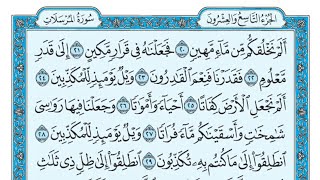 الجزء التاسع والعشرون سورة المرسلات
ألم نخلقكم من ماء مهين ٢٠ فجعلناه في قرار مكين ٢١ إلى قدر
معلوم ٢٢ فقدرنا فنعم القادرون ٢٣ ويل يومئذ للمكذبين ٢٤
ألم نجعل الأرض كفاتا ٢٥ أحياء وأمواتا ٢٦ وجعلنا فيها رواسي
شامخات وأسقيناكم ماء فراتا ٢٧ ويل يومئذ للمكذبين ٢٨
انطلقوا إلى ما كنتم به تكذبون ٢٩ انطلقوا إلى ظل ذي ثلاث